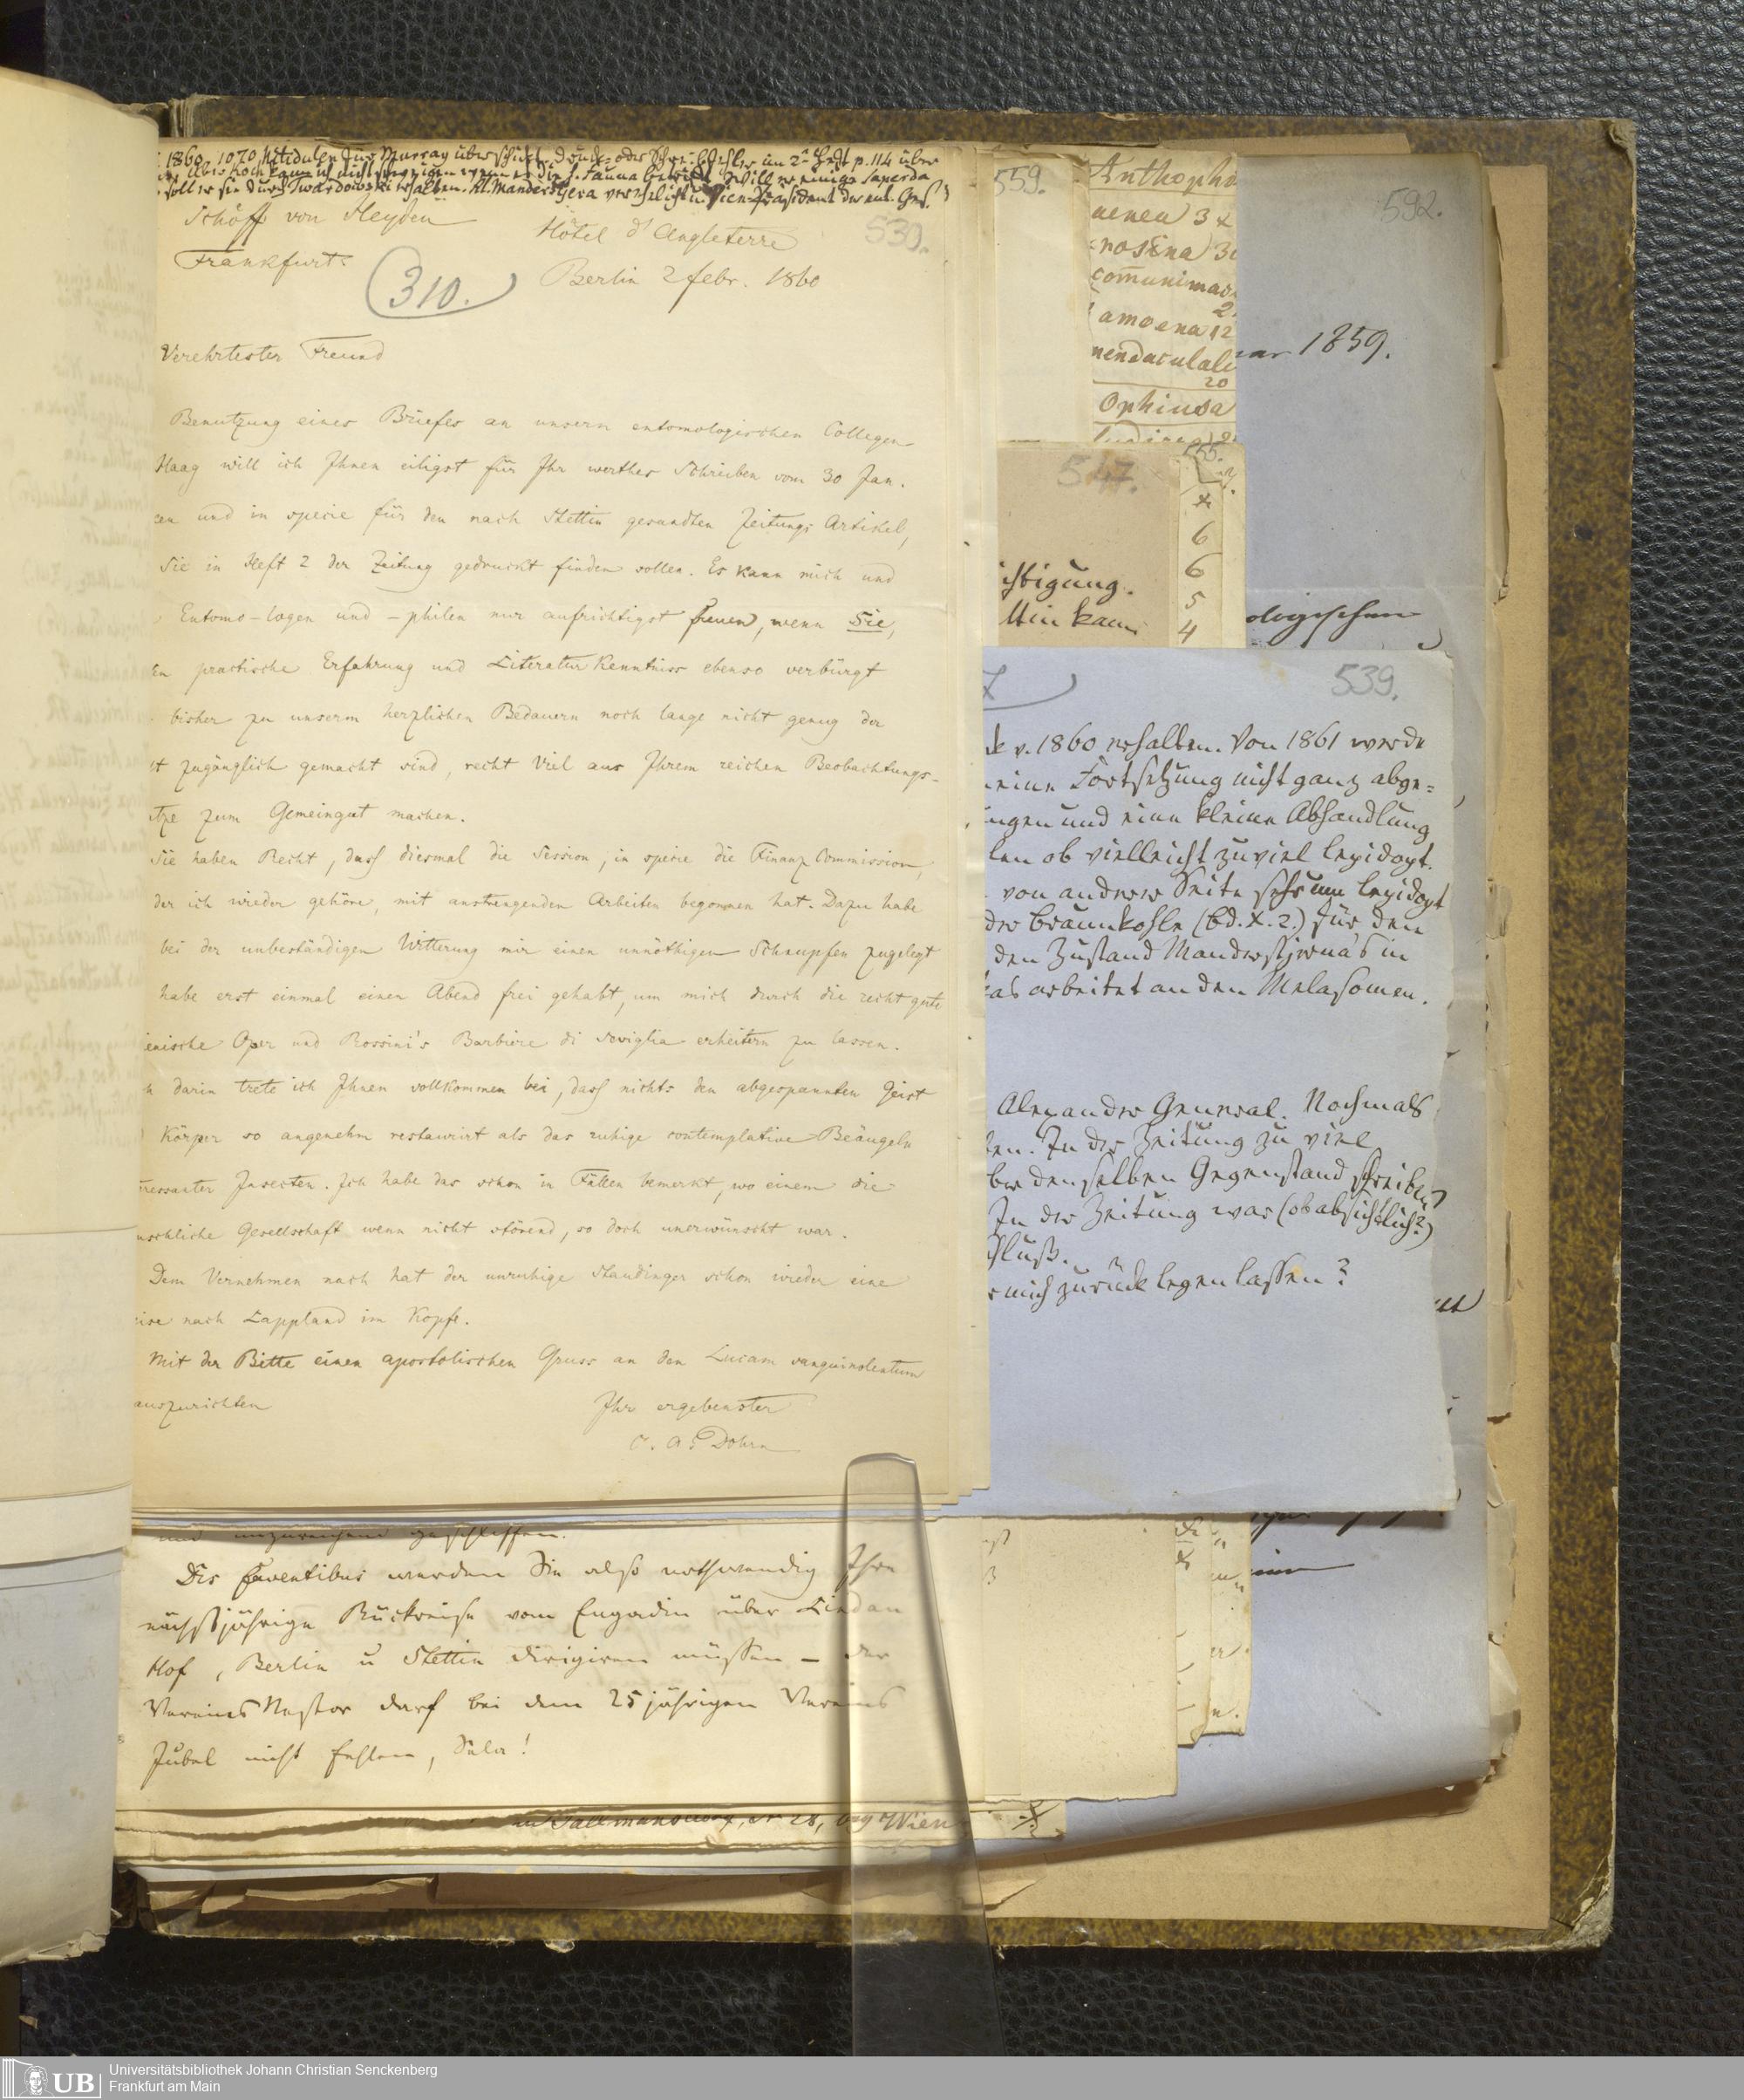 1860. 1070 Nitidulen für Murray überschickt. Druck- oder Schreibfehler im 2n Heft p. 114 über
soll er sie durch Twardowski erhalten. Kl. Manderstjerna verehelicht u. Vice-Präsident der ent. Ges.
Schöff von Heyden
Frankfurt
310.
Hôtel d'Angleterre
530.
Berlin 2 febr. 1860
Verehrtester Freund
Benutzung eines Briefes an unsern entomologischen Collegen
Haag will ich Ihnen eiligst für Ihr werthes Schreiben vom 30 Jan.
und in specie für den nach Stettin gesandten Zeitungs Artikel,
Sie in Heft 2 der Zeitung gedruckt finden sollen. Es kann mich und
Entomo-logen und -philen nur aufrichtigst freuen, wenn Sie,
practische Erfahrung und Literatur Kenntniss ebenso verbürgt
bisher zu unserm herzlichen Bedauern noch lange nicht genug der
zugänglich gemacht sind, recht Viel aus Ihrem reichen Beobachtungs-
tze zum Gemeingut machen.
Sie haben Recht, dass diesmal die Session, in specie die Finanz Commission,
der ich wieder gehöre, mit anstrengenden Arbeiten begonnen hat. Dazu habe
bei der unbeständigen Witterung mir einen unnöthigen Schnupfen zugelegt
habe erst einmal einen Abend frei gehabt, um mich durch die recht gute
ienische Oper und Rossini's Barbiere di Seviglia erheitern zu lassen.
darin trete ich Ihnen vollkommen bei, dass nichts den abgespannten Geist
Körper so angenehm restaurirt als das ruhige contemplative Beäugeln
ressanter Insecten. Ich habe das schon in Fällen bemerkt, wo einem die
nschliche Gesellschaft wenn nicht störend, so doch unerwünscht war.
Dem Vernehmen nach hat der unruhige Staudinger schon wieder eine
ise nach Lappland im Kopfe.
Mit der Bitte einen apostolischen Gruss an den Lucam sanguinolentum
auszurichten
Ihr ergebenster
C. A. Dohrn
und unzureichend geschliffen.
Dis faventibus werden Sie also nothwendig Ihre
nächstjährige Rückreise vom Engadin über Lindau
Hof, Berlin u Stettin dirigiren müssen – der
Vereins Nestor darf bei dem 25jährigen Vereins
Jubel nicht fehlen, Sela!
28, bey Wien
559.
Anthopho
aenea 3 x
rosina 3
communimac
2
amoena 12
20
Ophiusa
547.
555.
x
6
6
5
4
chtigung.
ttin kam
592.
1859.
ologischen
539.
v. 1860 erhalten. Von 1861 werde
eine Fortsetzung nicht ganz abge=
ngen und eine kleine Abhandlung
len ob vielleicht zuviel lepidopt.
von anderer Seite sehr um lepidopt
der Braunkohle (Bd. X. 2.) für den
den Zustand Manderstjerna's in
as arbeitet an den Melasomen.
Alexander General. Nochmals
en. In der Zeitung zu viel
ber denselben Gegenstand schreiben
In der Zeitung war (ob absichtlich?)
chluß.
mich zurück legen lassen?
UB
Universitätsbibliothek Johann Christian Senckenberg
Frankfurt am Main